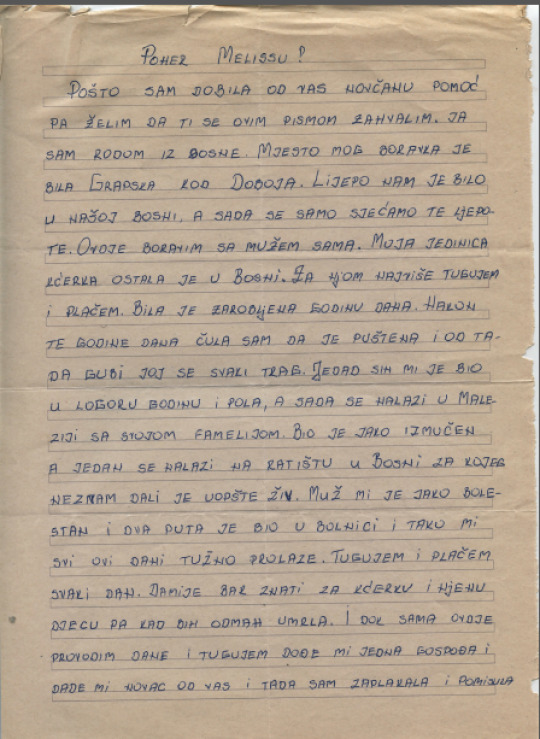 POHEZ MELISSU!
POŠTO SAM DOBILA OD VAS NOVČANU POMOĆ
PA ŽELIM DA TI SE OVIM PISMOM ZAHVALIM. JA
SAM RODOM IZ BOSNE. MJESTO MOG BORAVKA JE
BILA GRAPSKA KOD DOBOJA. LIJEPO NAM JE BILO
U NAŠOJ BOSNI, A SADA SE SAMO SJEĆAMO TE LJEPO-
TE. OVDJE BORAVIM SA MUŽEM SAMA. MOJA JEDINICA
KĆERKA OSTALA JE U BOSNI. ZA NJOM NAJVIŠE TUGUJEM
I PLAČEM. BILA JE ZAROBLJENA GODINU DANA. NAKON
TE GODINE DANA ČULA SAM DA JE PUŠTENA I OD TA-
DA GUBI JOJ SE SVAKI TRAG. JEDAD SIN MI JE BIO
U LOGORU GODINU I POLA, A SADA SE NALAZI U MALE-
ZIJI SA SVOJOM FAMELIJOM. BIO JE JAKO IZMUČEN
A JEDAN SE NALAZI NA RATIŠTU U BOSNI ZA KOJEG
NEZNAM DALI JE UOPŠTE ŽIV. MUŽ MI JE JAKO BOLE-
STAN I DVA PUTA JE BIO U BOLNICI I TAKO MI
SVI OVI DANI TUŽNO PROLAZE. TUGUJEM I PLAČEM
SVAKI DAN. DAMIJE BAR ZNATI ZA KĆERKU I NJENU
DJECU PA KAD BIH ODMAH UMRLA. I DOK SAMA OVDJE
PROVODIM DANE I TUGUJEM DOĐE MI JEDNA GOSPOĐA I
DADE MI NOVAC OD VAS I TADA SAM ZAPLAKALA I POMISLILA